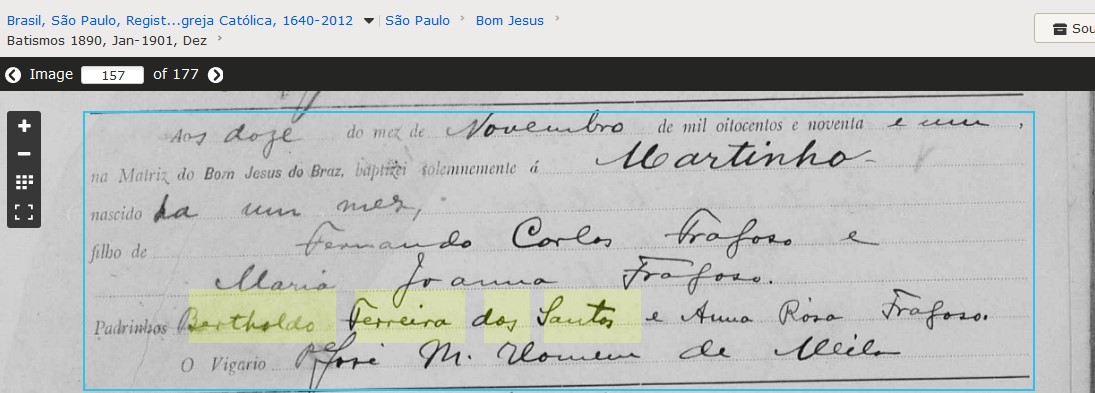 Brasil, São Paulo, Regist...greja Católica, 1640-2012 São Paulo Bom Jesus
Batismos 1890, Jan-1901, Dez
Sou
Image 157 of 177
Aos doze do mez de Novembro de mil oitocentos e noventa e um,
na Matriz do Bom Jesus do Braz, baptizei solemnemente á Martinho
nascido ha um mez,
filho de Fernando Carlos Fragoso e
Maria Joanna Fragoso.
Padrinhos Bertholdo Ferreira dos Santos e Anna Rosa Fragoso.
O Vigario Pe José M. Homem de Mello